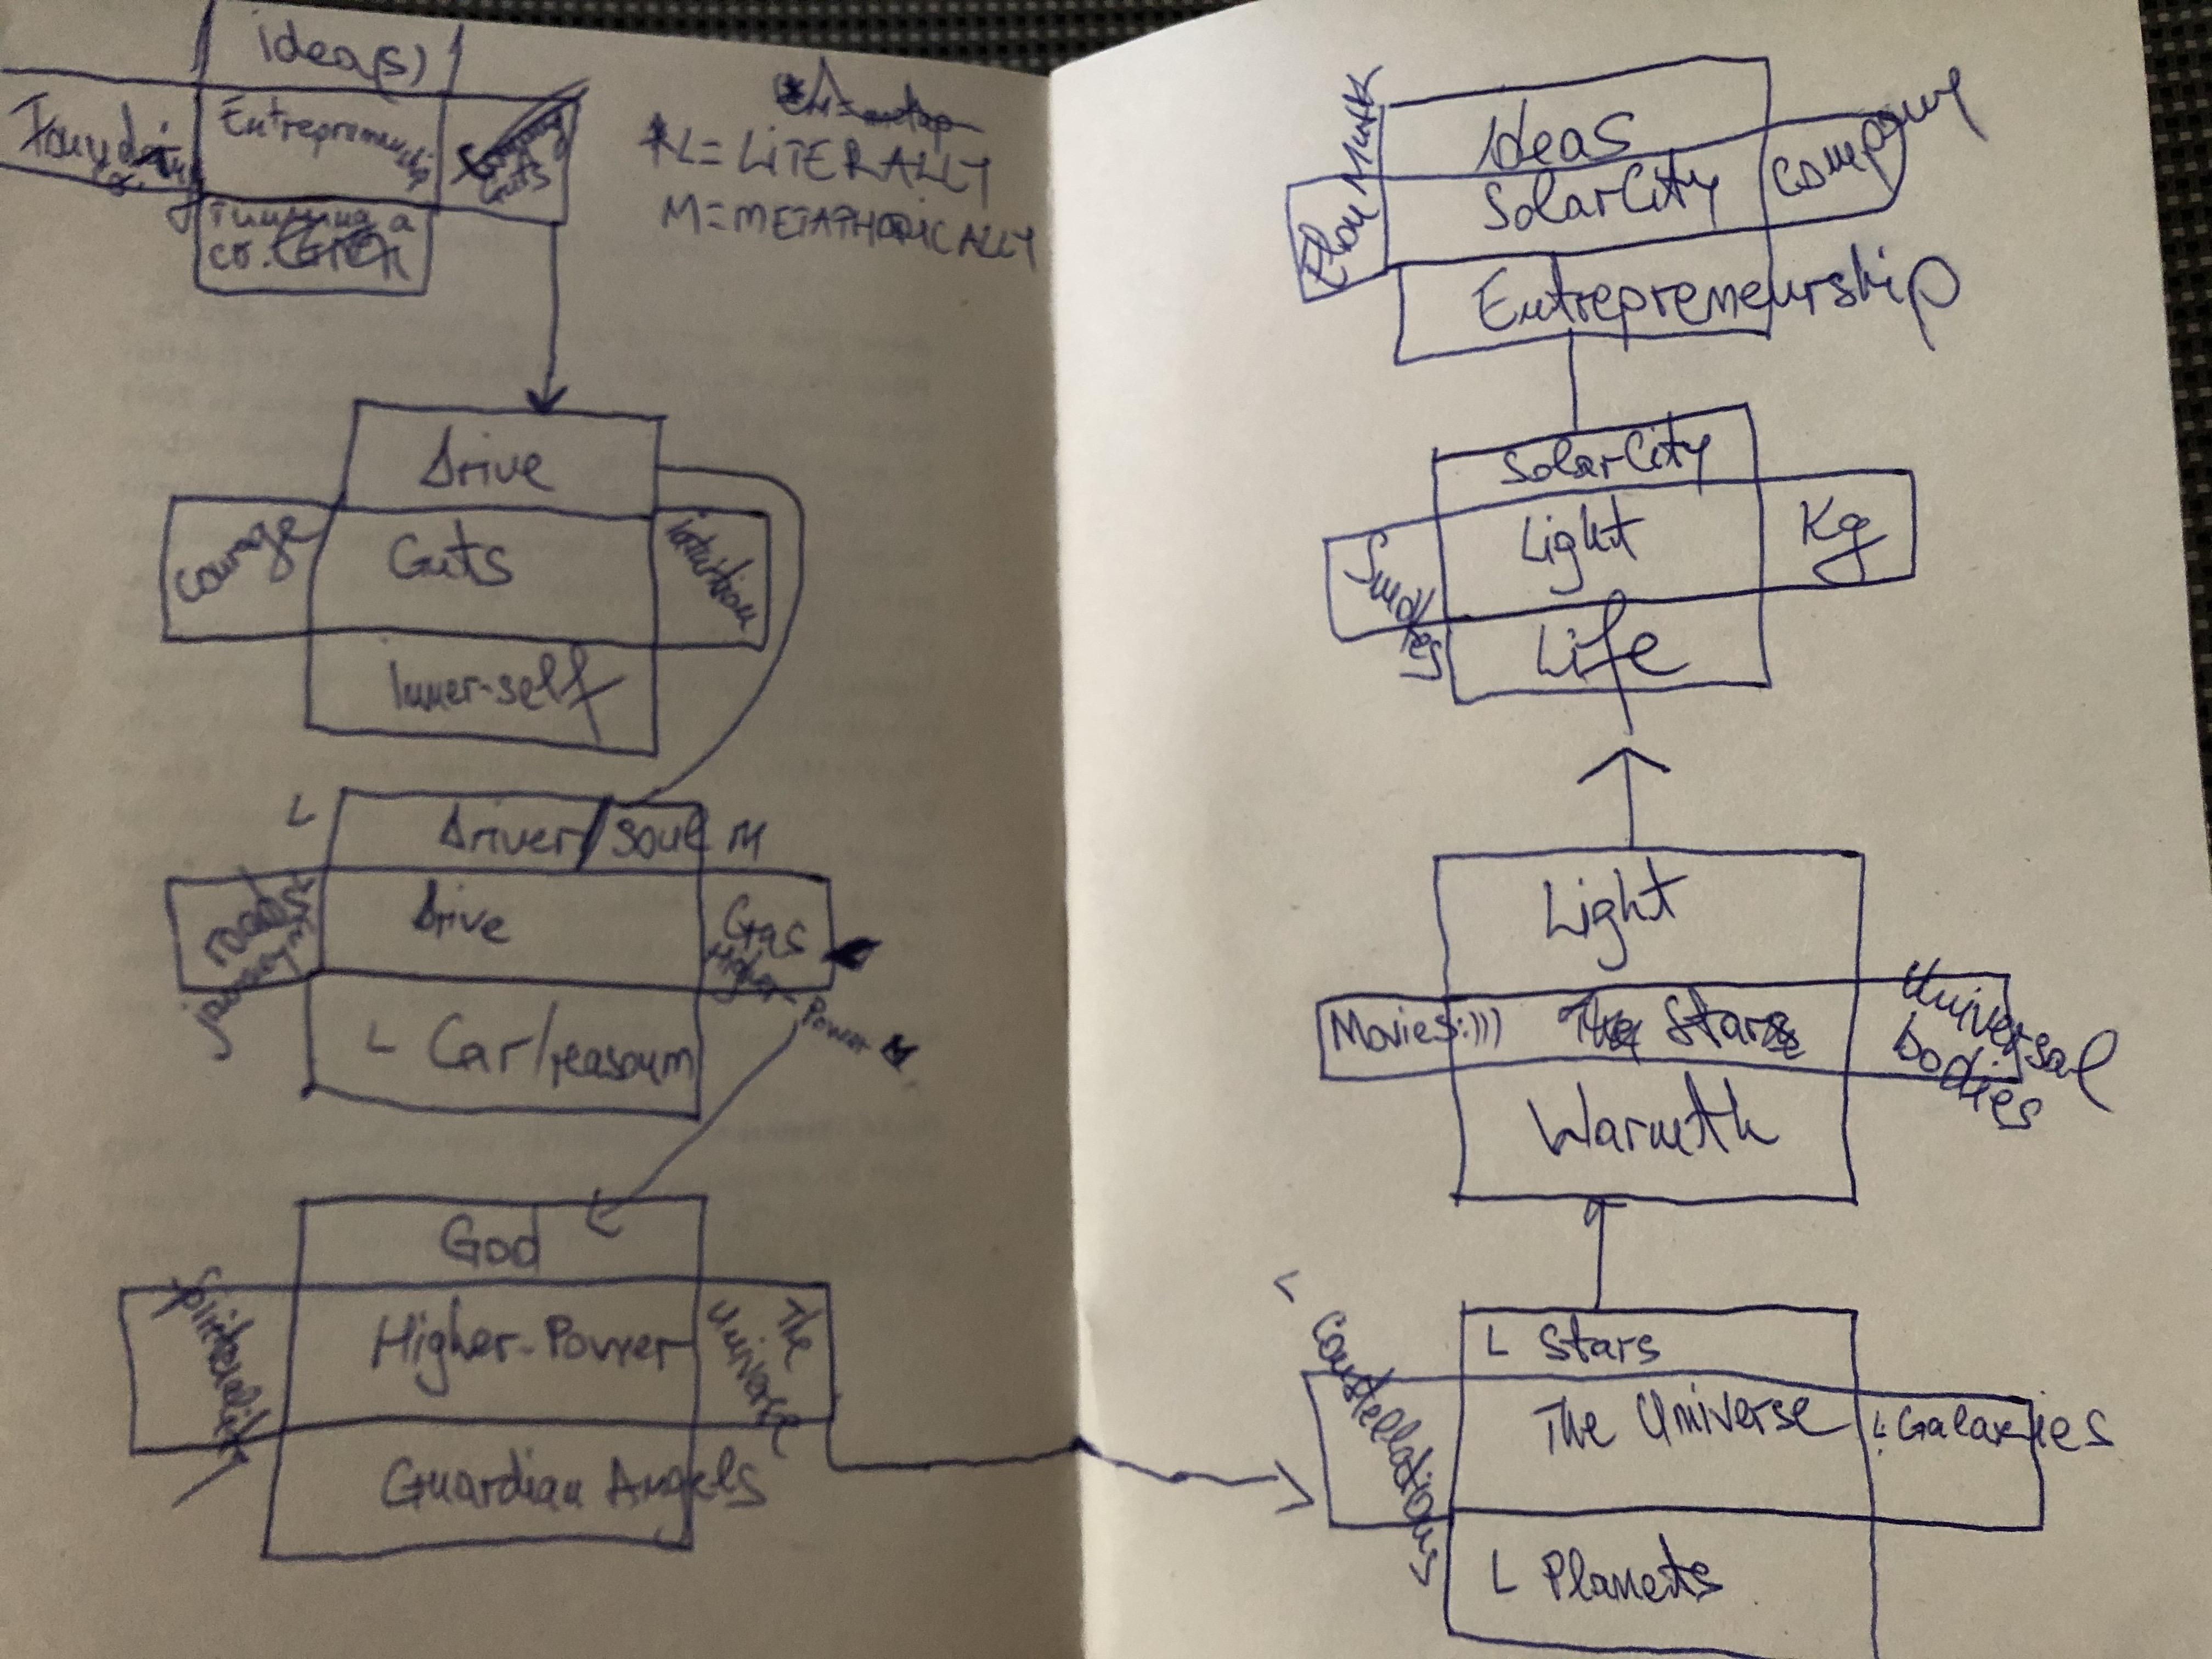 idea(s)
Founding
Entrepreneurship
Guts
running a
co.
*L = LITERALLY
M = METAPHORICALLY
Drive
courage
Guts
intuition
Inner-self
L Driver/soul M
roads L
journey M
Drive
Gas
Higher-
Power M
L Car/reasoum
God
Spirituality
Higher-Power
The
Universe
Guardian Angels
Elon Musk
Ideas
SolarCity
company
Entrepreneurship
SolarCity
Light
Kg
Life
Light
Movies:)))
The Stars
Universal
bodies
Warmth
L Stars
L Constellations
The Universe
L Galaxies
L Planets